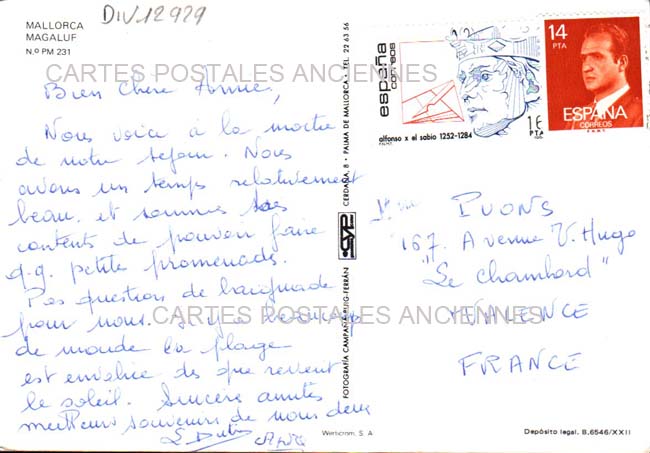 DIV.12929
MALLORCA
MAGALUF
N.º PM 231
CARTES POSTALES ANCIENNES
Bien Chère Annie,
Nous voici à la moitié
de notre séjour. Nous
avons un temps relativement
beau, et sommes très
contents de pouvoir faire
q.q. petites promenades.
Pas question de baignade
pour nous. Il y a beaucoup
de monde la plage
est envahie dès que revient
le soleil. Sincère amitiés
meilleurs souvenirs de nous deux
CARTES POSTALES ANCIENNES
FOTOGRAFÍA CAMPAÑÁ-PUIG-FERRÁN
CERDAÑA, 8 - PALMA DE MALLORCA - TEL. 22 63 56
españa
correos
alfonso x el sabio 1252-1284
16
PTA
14
PTA
ESPAÑA
CORREOS
PUONS
167. Avenue V. Hugo
"Le Chambord"
VALENCE
FRANCE
Werticrom, S. A.
Depósito legal. B. 6546/XXII